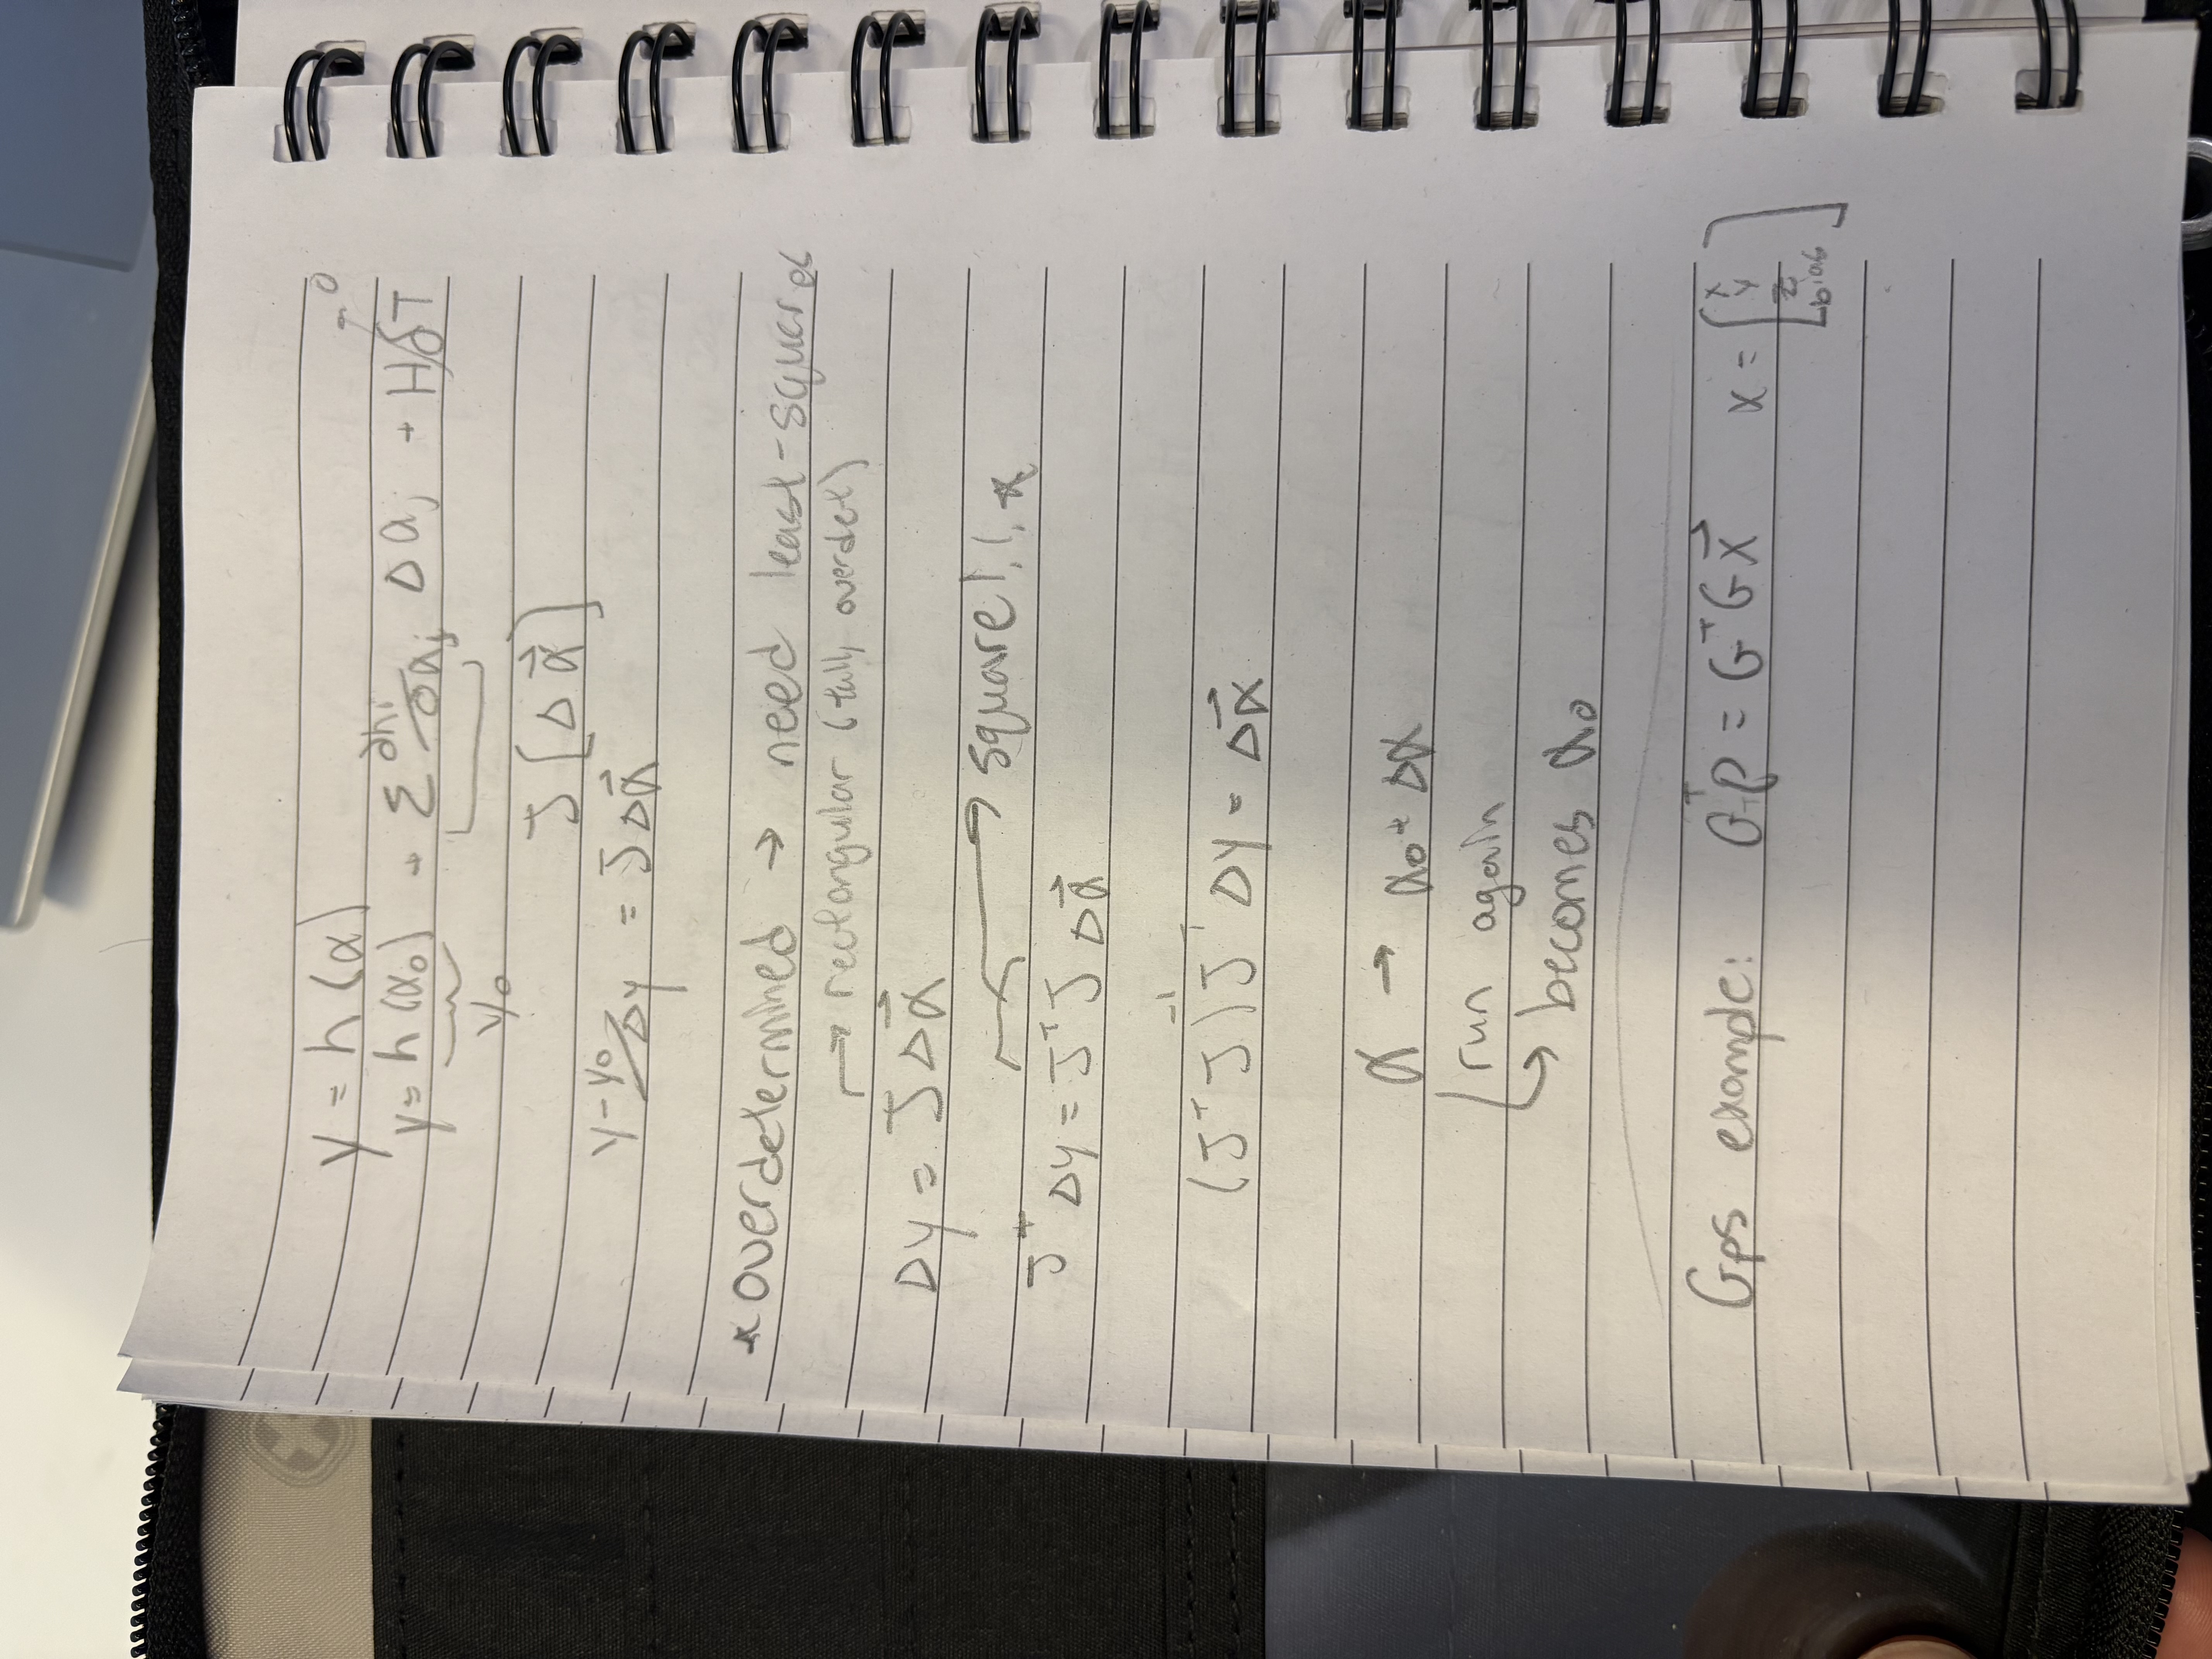 y = h(α)
y = h(α₀) + Σ ∂hᵢ/∂aⱼ Δaⱼ + HOT → 0
y₀
J [Δα⃗]
y-y₀ / Δy = JΔα⃗
* overdetermined → need least-squares
→ rectangular (tall, overdet)
Δy = JΔα⃗
→ square!!*
Jᵀ Δy = JᵀJ Δα⃗
(JᵀJ)⁻¹Jᵀ Δy = Δα⃗
α → α₀ + Δα
run again
↳ becomes α₀
Gps example: Gᵀρ = GᵀG x⃗ x = [x y z bias]